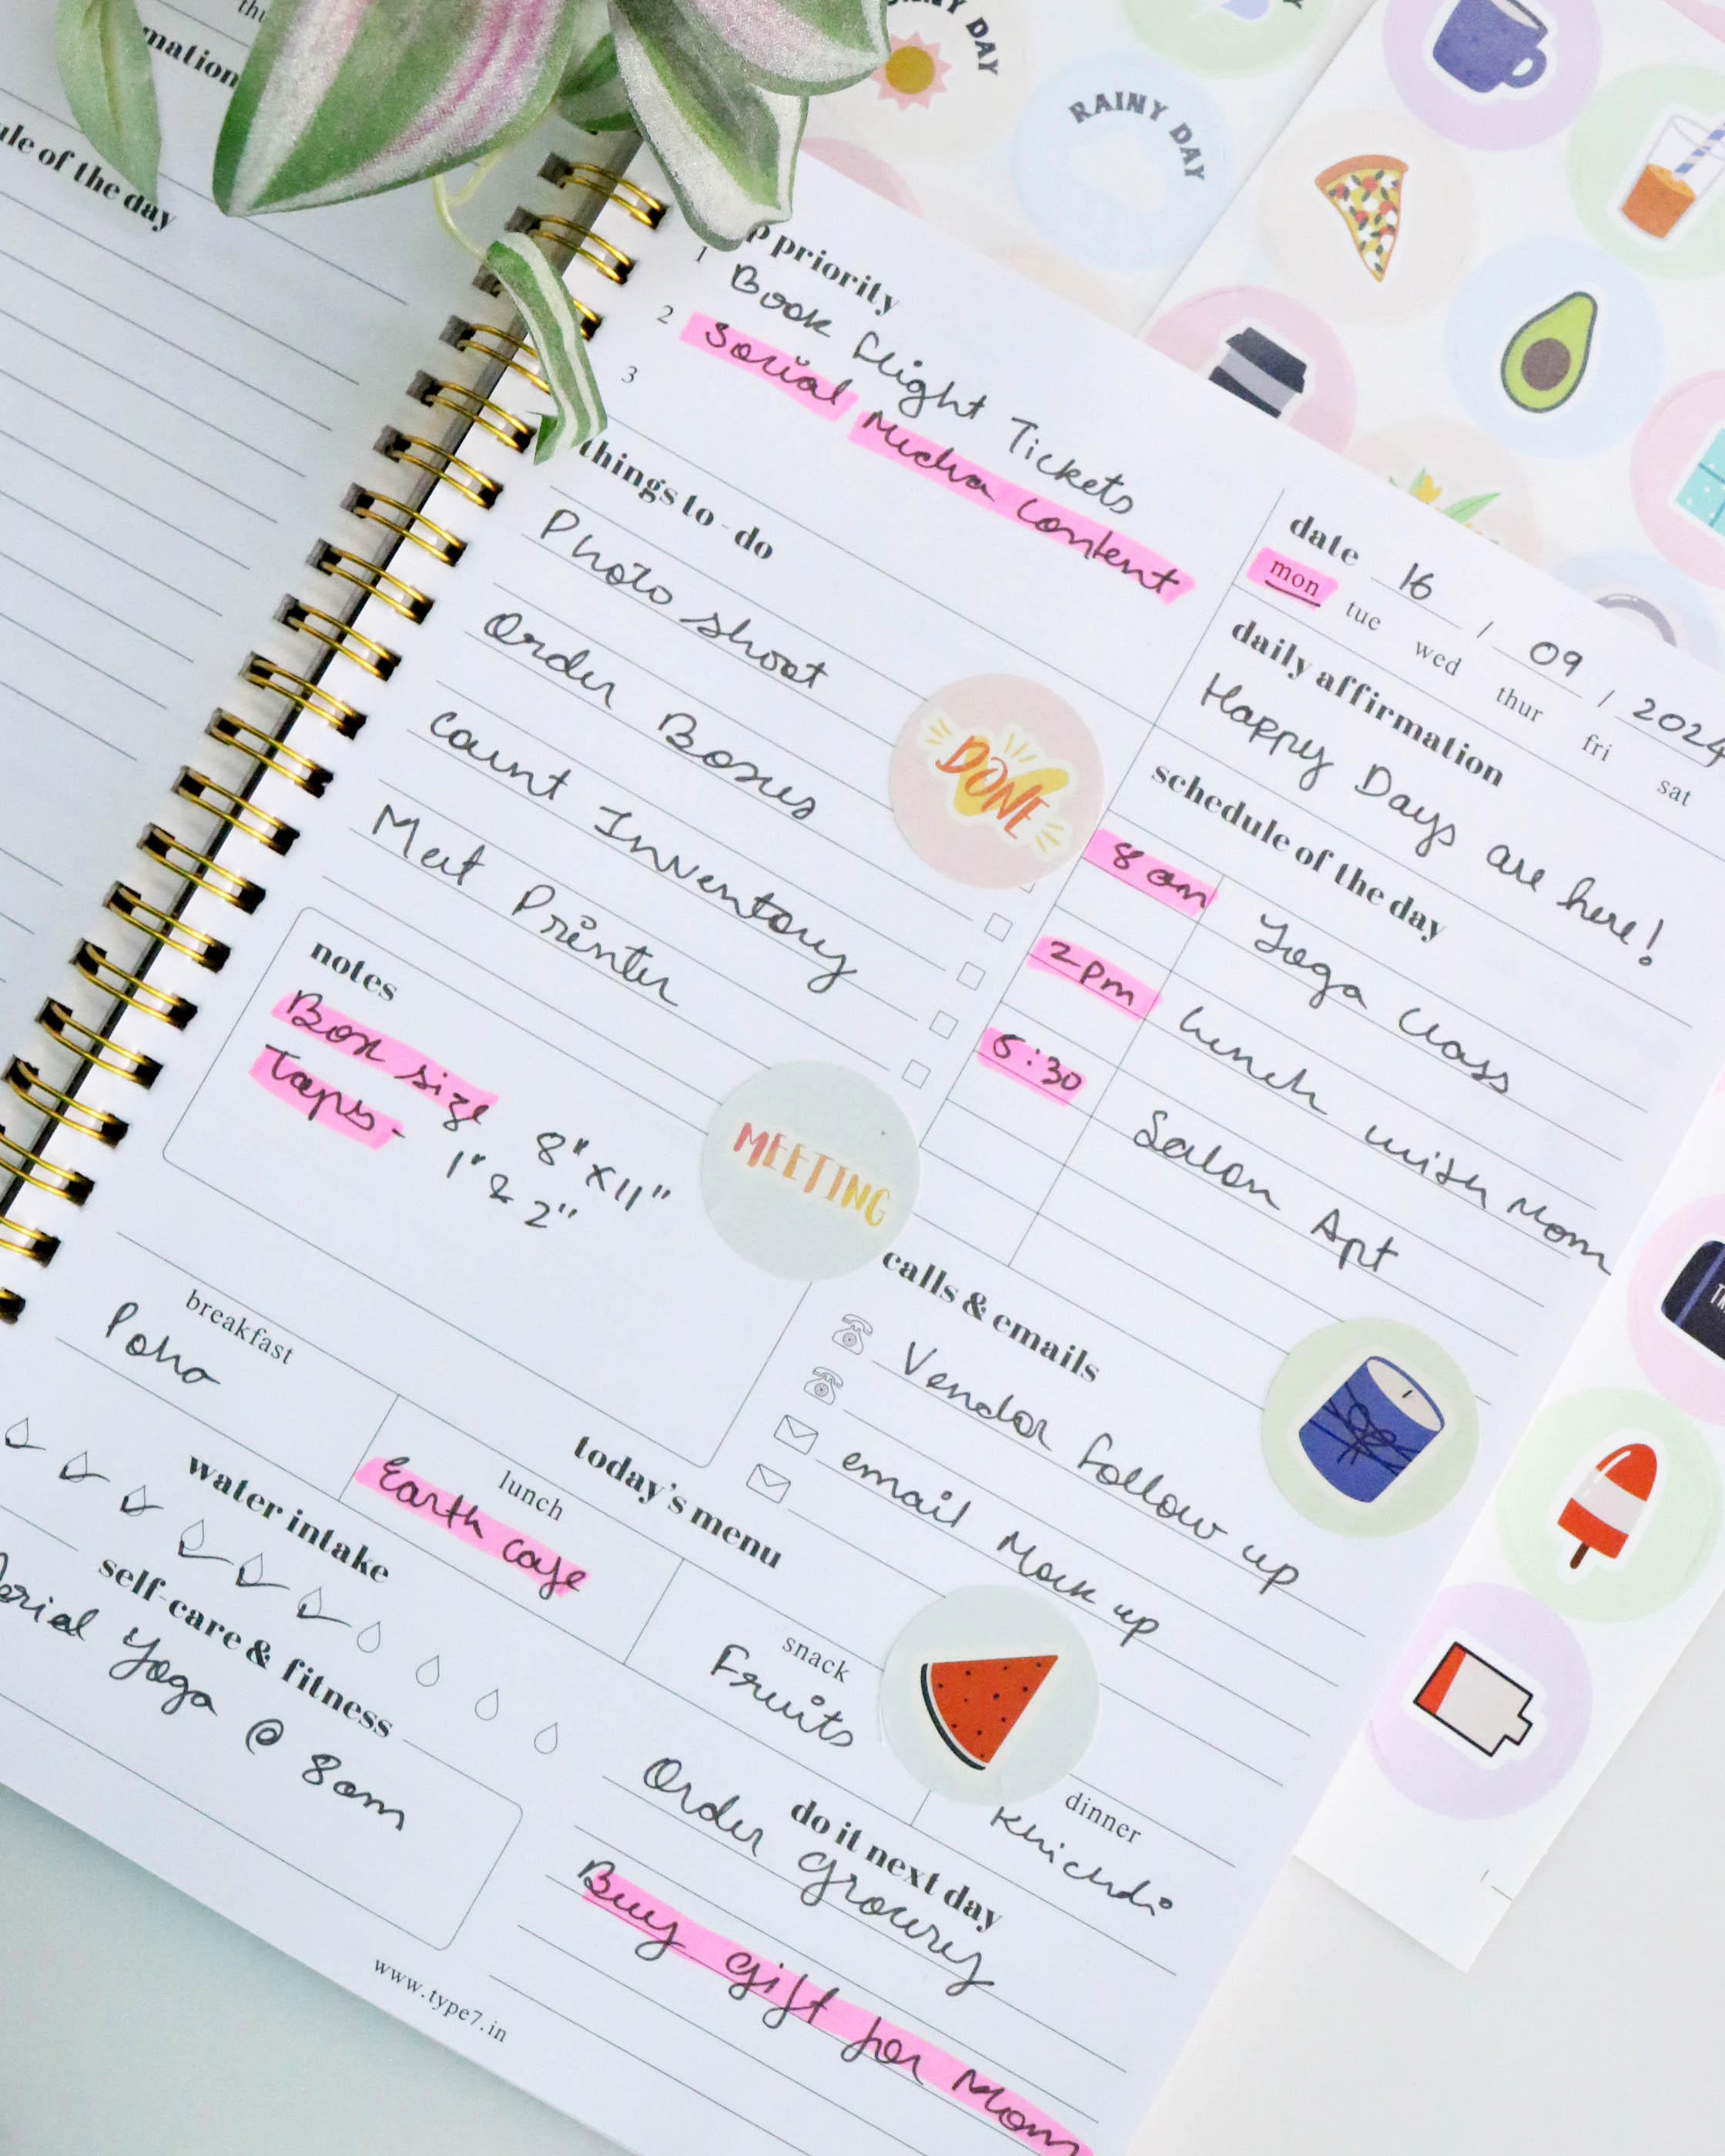 mation
ule of the day
NY DAY
RAINY DAY
p priority
1 Book flight Tickets
2 Social Media Content
3
things to-do
Photo shoot
Order Boxes
Count Inventory
Meet Printer
DONE
notes
Box size 8" x 11"
Tapes- 1" & 2"
MEETING
date 16 / 09 / 2024
mon tue wed thur fri sat
daily affirmation
Happy Days are here!
schedule of the day
8 am Yoga Class
2pm lunch with Mom
5:30 Salon Apt
calls & emails
Vendor follow up
email Mock up
today's menu
breakfast
Poha
lunch
Earth Cafe
snack
Fruits
dinner
Khichdi
water intake
self-care & fitness
Aerial Yoga @ 8am
do it next day
Order Grocery
Buy gift for Mom
www.type7.in